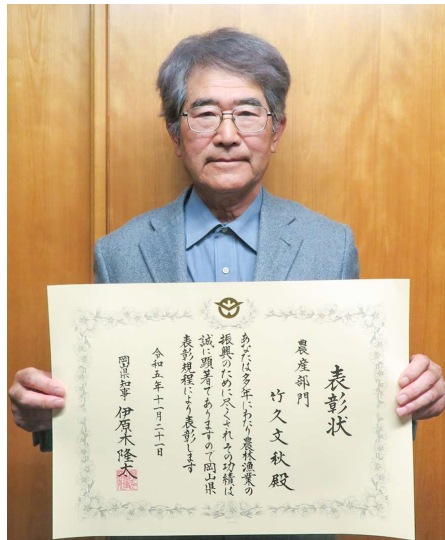 表彰状
農産部門
竹久文秋殿
あなたは多年にわたり農林漁業の
振興のために尽くされその功績は
誠に顕著でありますので岡山県
表彰規程により表彰します
令和五年十一月二十一日
岡山県知事 伊原木隆太